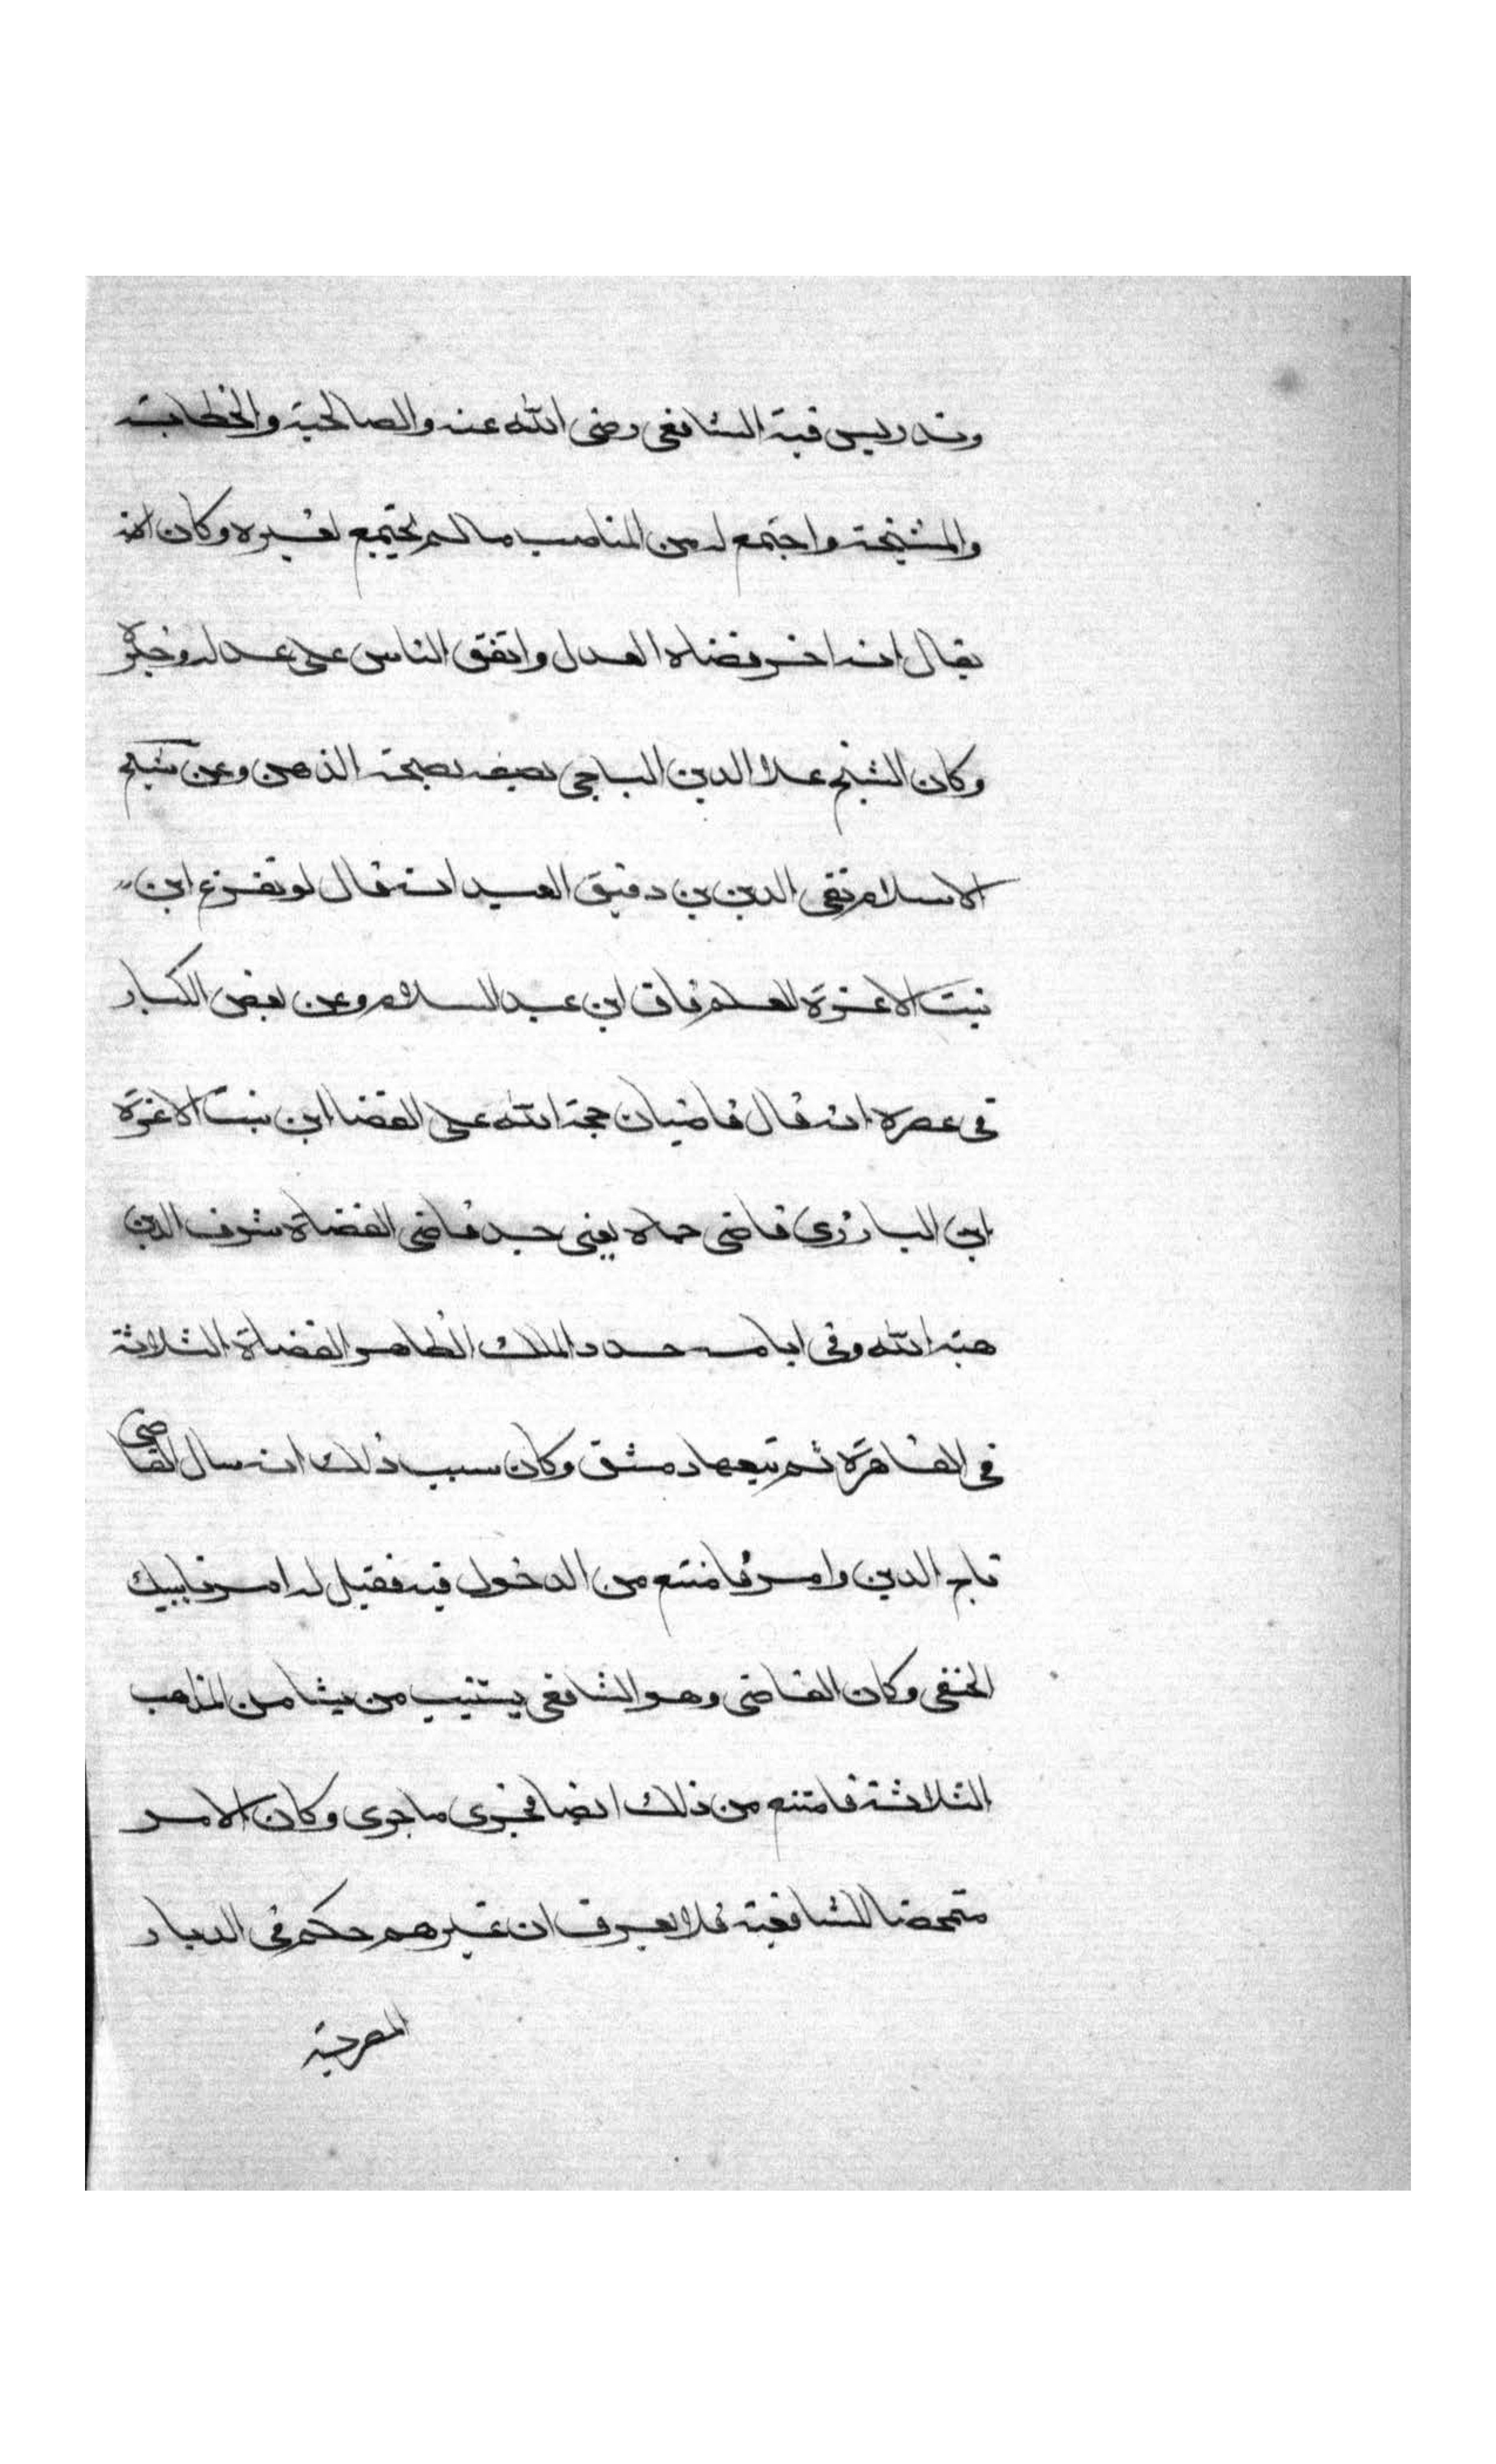 وتدريس قبة الشافعى رضى الله عنه والصالحية والخطابة
والمشيخة واجتمع له من المناصب ما لم يجتمع لغيره وكان
يقال انه اخر قضاه العدل واتفق الناس على عدله وخيره
وكان الشيخ علا الدين الباجى يصفه بصحة الذهن وعن شيخ
الاسلام تقى الدين بن دقيق العيد انه قال لو تفرغ ابن
بنت الاعزة للعلم فاق ابن عبد السلام وعن بعض الكبار
فى عصره انه قال قاضيان حجة الله على القضا ابن بنت الاعزة
ابن البارزى قاضى حماه يعنى جد قاضى القضاة شرف الدين
هبة الله وفى ايامه جدد الملك الظاهر القضاة الثلاثة
فى القاهرة ثم تبعها دمشق وكان سبب ذلك انه سال القاضى
تاج الدين وامر فامتنع من الدخول فيه فقيل له امر نايبك
الحنفى وكان القاضى وهو الشافعى يستنيب من يشا من المذاهب
الثلاثة فامتنع من ذلك ايضا فجرى ما جرى وكان الامر
متمحضا للشافعية فلا يعرف ان غيرهم حكم فى الديار
المصرية